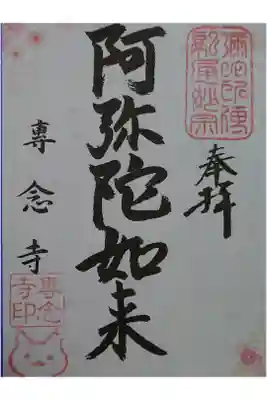 奉拝
阿弥陀如来
専念寺
専念
寺印